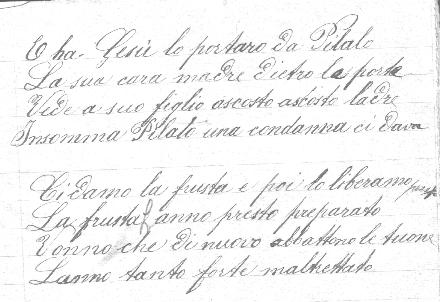 E ha. Gesù lo portaro da Pilato
La sua cara madre dietro la porta
Vide a suo figlio ascosto ascosto ladre
Insomma Pilato una condanna ci dava
Ci damo la frusta e poi lo liberamo
La frusta fanno presto preparato
Vonno che di nuovo abbattono le tuone
L'anno tanto forte maltrettato